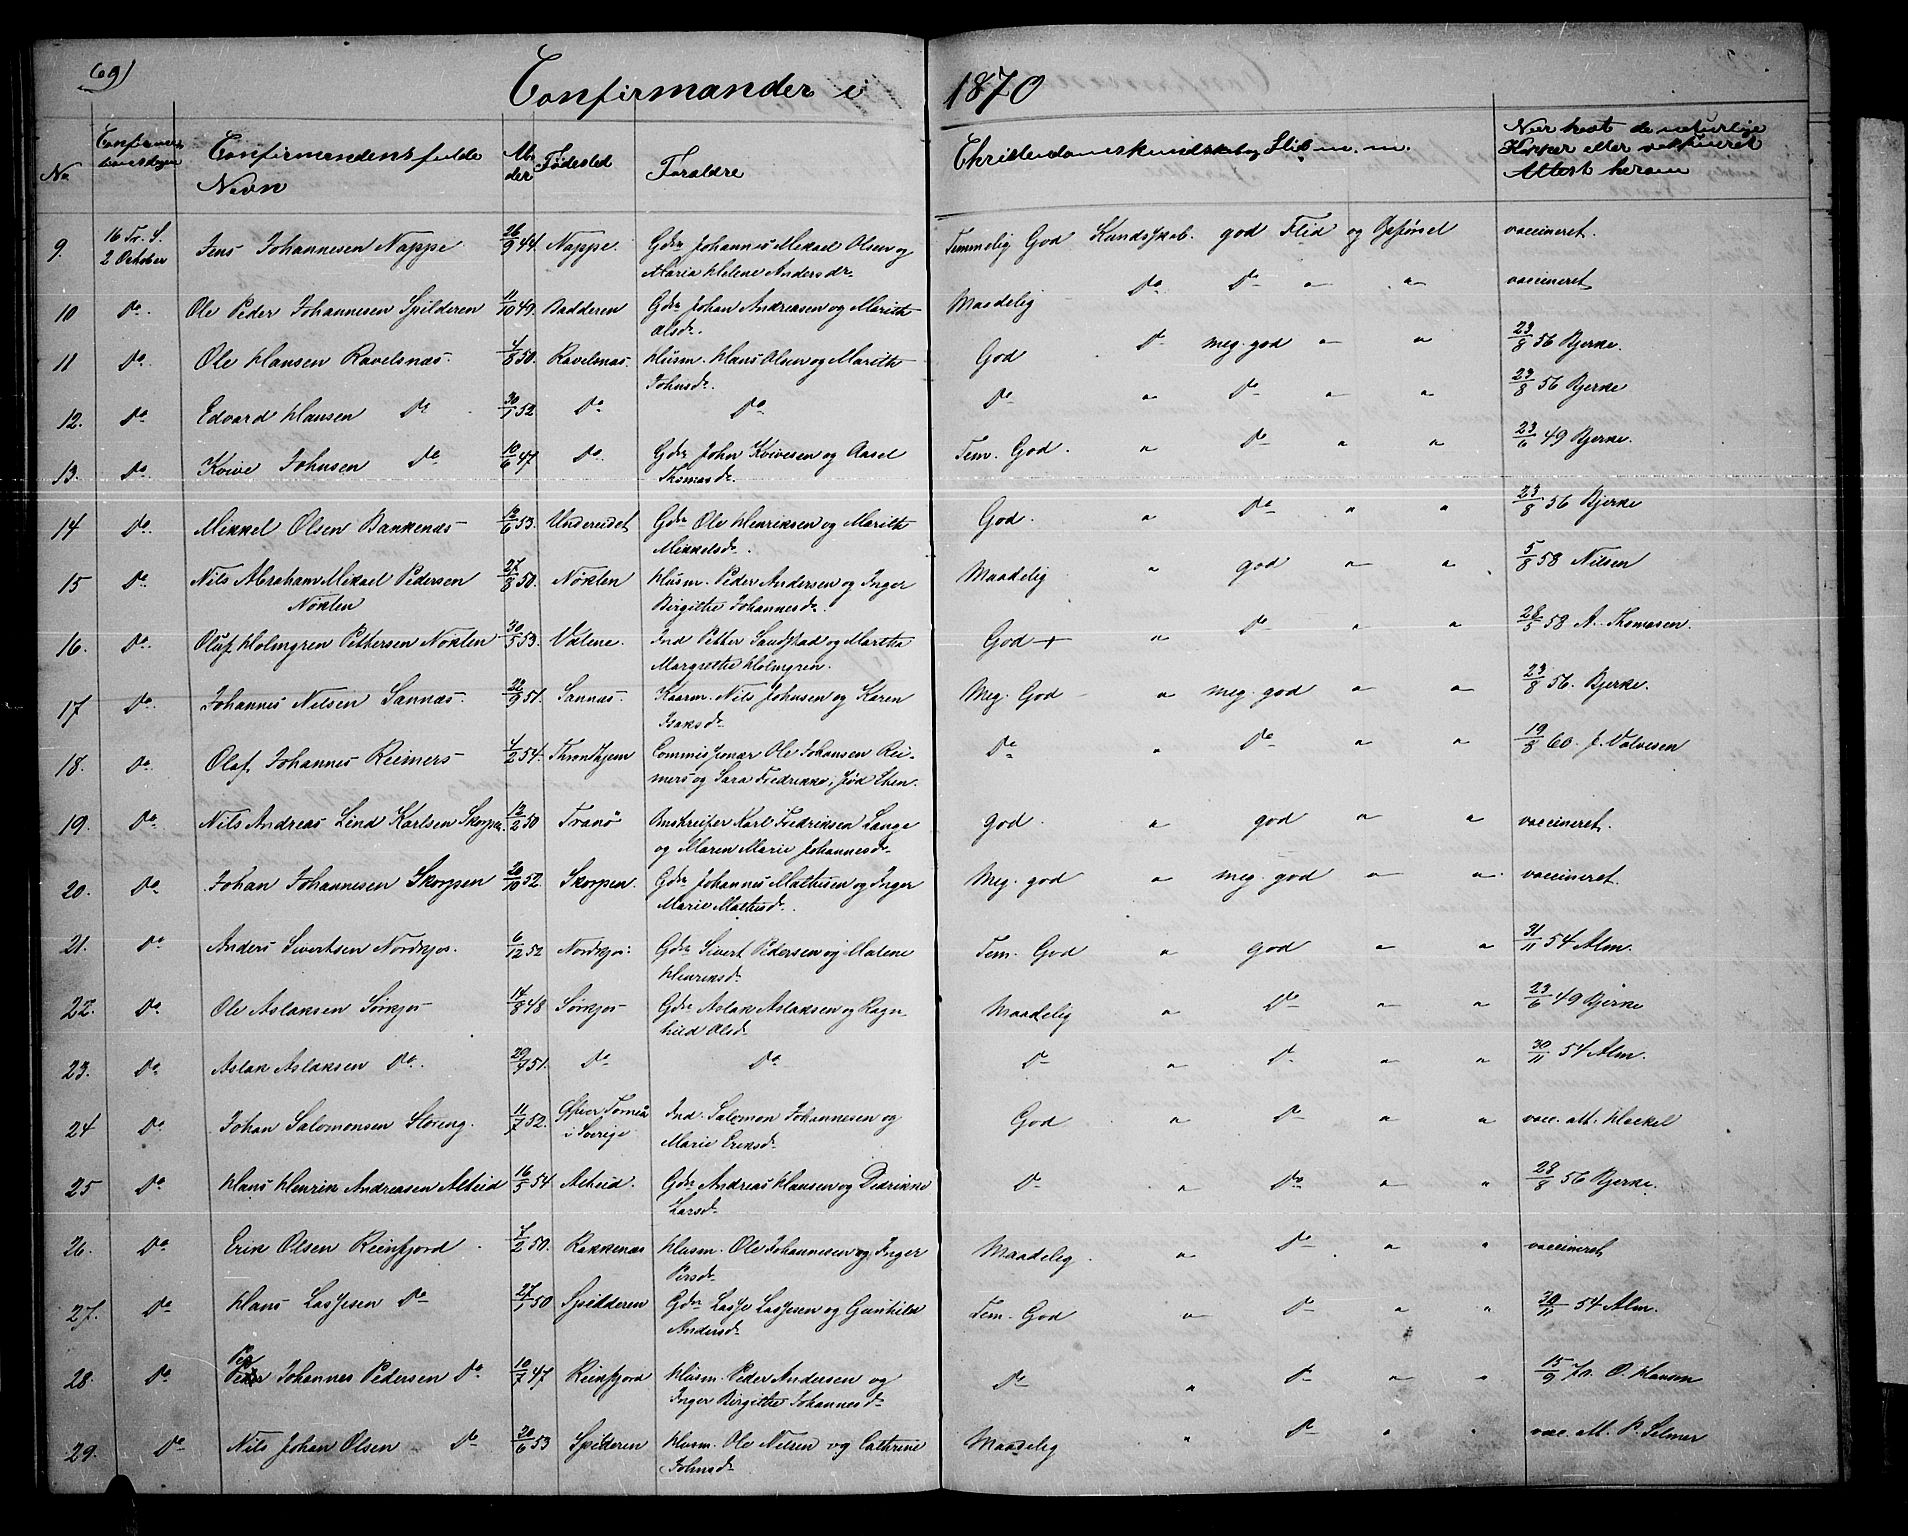 69)
Confirmander i 1870
No
Confirmationsdagen
Confirmandens fulde Navn
Alder
Fødested
Forældre
Christendomskundskab og Flid m. m.
Naar havt de naturlige Kopper eller vakcineret Attest herom
9. 16 Tr. S. 2 October Jens Johannesen Nappe 26/9 44. Nappe. Gdr Johannes Mikael Olsen og Maria Helene Andersdr. Temmelig God Kundskab. god Flid og Opførsel vaccineret.
10 Do. Ole Peder Johannesen Spilderen 11/10 49. Badderen Gdr Johan Andreasen og Marith Olsdr. Maadelig Do Do " " vaccineret
11 Do. Ole Hansen Ravelsnæs 4/8 50. Ravelsnæs. Husm. Hans Olsen og Marith Johnsdr. God Do meg. god " " 23/8 56 Bjerke.
12. Do Edvard Hansen Do 30/1 52. Do Do Do " Do " " 23/8 56 Bjerke
13. Do. Kvive Johnsen Do 10/6 47 Do. Gdr John Kvivesen og Aasel Thomasdr. Tem. God. " Do " " 23/6 49 Bjerke.
14 Do. Mikkel Olsen Bankenæs 12/6 53. Undereidet Gdr Ole Henriksen og Marith Mikkelsdr. God. " Do " " 23/8 56 Bjerke
15 Do. Nils Abraham Mikael Pedersen Nøklen 27/8 50. Nøklen Husm. Peder Andersen og Inger Birgitte Johannesdr. Maadelig " god " " 5/8 58 Nilsen
16. Do. Oluf Holmgren Pettersen Nøklen 30/5 53. Valene. Ind Petter Sandstad og Martha Margrethe Holmgren. God + " Do " " 28/5 58 A. Thomasen.
17 Do. Johannes Nilsen Sannæs. 22/9 51. Sannæs. Kaarm. Nils Johnsen og Karen Isaksdr. Meg. God " meg. god " " 23/8 56. Bjerke.
18. Do. Olaf Johannes Reimers 4/2 54. Throndhjem Commissionær Ole Johansen Reimers og Sara Fredrikke, fød Do " Do " " 19/8 60. J. Valvesen
19. Do Nils Andreas Lind Karlsen Skorpen. 12/2 50 Tranø Karl Fredriksen Lange og Maren Marie Johannesdr. god. " god " " vaccineret.
20. Do. Johan Johannesen Skorpen 20/10 52. Skorpen. Gdr Johannes Mathisen og Inger Marie Mathisdr. Meg. god " meg. god " " vaccineret.
21. Do Anders Sivertsen Nordkjos. 6/12 52 Nordkjos. Gdr Sivert Pedersen og Malene Henriksdr Tem. God " god " " 31/11 54 Alm.
22. Do Ole Aslaksen Sørkjos 14/8 48 Sørkjos Gdr Aslak Aslaksen og Ragnhild Olsdr Maadelig " Do " " 23/6 49 Bjerke
23. Do Aslak Aslaksen Do. 29/4 51. Do Do Do " Do " " 30/11 54 Alm.
24 Do Johan Salomonsen Storeng. 11/7 52. Øfver Torneå i Sverige Ind. Salomon Johannesen og Marie Eriksdr. God " Do " " vacc. att. Heckel
25 Do Hans Henrik Andreasen Alteid 16/5 54 Alteid. Gdr Andreas Hansen og Dedrikke Larsdr. Do " Do " " 28/8 56 Bjerke.
26. Do Erik Olsen Reinfjord 4/2 50. Kakkenæs Husm. Ole Johannesen og Inger Persdr. Maadelig. " Do " " vaccineret
27. Do Hans Lassesen Do 27/1 50 Spilderen Gdr Lasse Lassesen og Gunhild Andersdr. Tem. God " Do " " 30/11 54 Alm.
28. Do Per Johannes Pedersen Do 10/7 47 Reinfjord Husm. Peder Andersen og Inger Birgitte Johannesdr. Do " Do " " 15/9 70. O. Hansen
29. Do Nils Johan Olsen Do 20/6 53 Spilderen Husm. Ole Nilsen og Cathrine Johnsdr Maadelig " Do " " vacc. att. P. Selmer